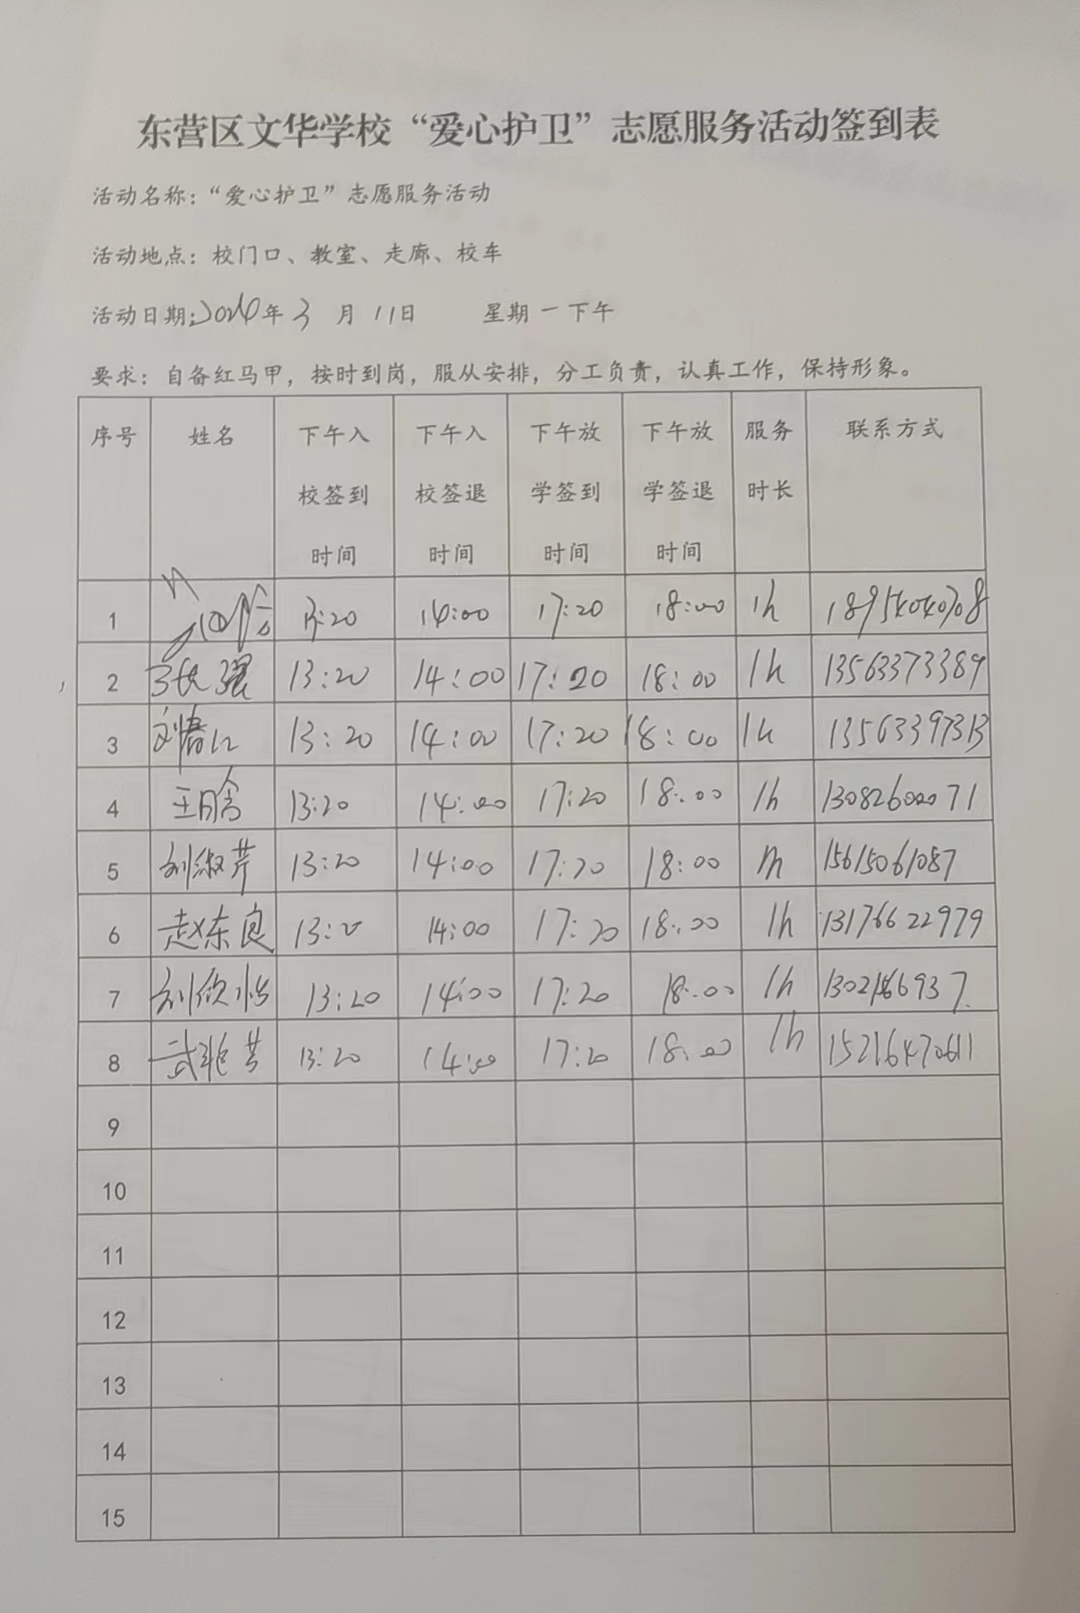 东营区文华学校“爱心护卫”志愿服务活动签到表
活动名称：“爱心护卫”志愿服务活动
活动地点：校门口、教室、走廊、校车
活动日期：2024年3月11日 星期一下午
要求：自备红马甲，按时到岗，服从安排，分工负责，认真工作，保持形象。
序号 姓名 下午入校签到时间 下午入校签退时间 下午放学签到时间 下午放学签退时间 服务时长 联系方式
1 13:20 14:00 17:20 18:00 1h 18954040708
2 张强 13:20 14:00 17:20 18:00 1h 13563373389
3 刘春江 13:20 14:00 17:20 18:00 1h 13563397313
4 王月 13:20 14:00 17:20 18:00 1h 13082600071
5 刘淑芹 13:20 14:00 17:20 18:00 1h 15615061087
6 赵东良 13:20 14:00 17:20 18:00 1h 13176622979
7 刘欣怡 13:20 14:00 17:20 18:00 1h
8 武艳芳 13:20 14:00 17:20 18:00 1h 15216470611
9
10
11
12
13
14
15